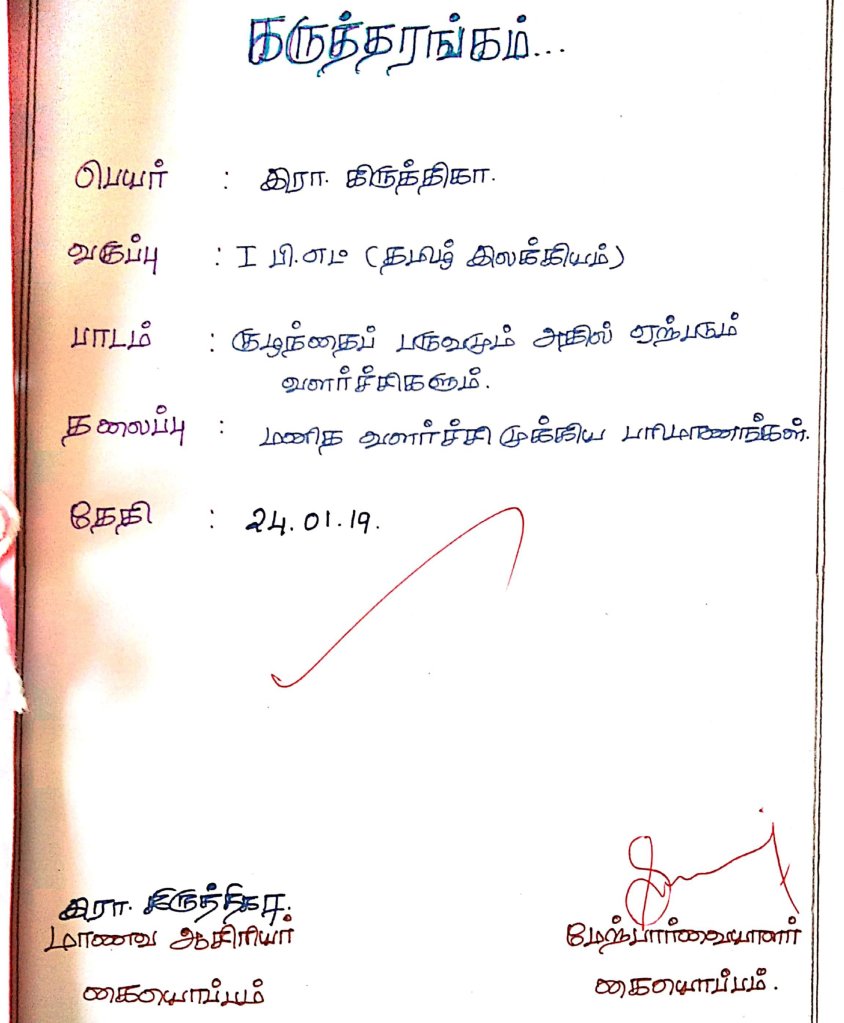 கருத்தரங்கம்...
பெயர் : இரா. கிருத்திகா.
வகுப்பு : I பி.எட் (தமிழ் இலக்கியம்)
பாடம் : குழந்தைப் பருவமும் அதில் ஏற்படும்
வளர்ச்சிகளும்.
தலைப்பு : மனித வளர்ச்சி முக்கிய பரிமாணங்கள்.
தேதி : 24.01.19.
இரா. கிருத்திகா.
மாணவ ஆசிரியர் மேற்பார்வையாளர்
கையொப்பம் கையொப்பம்.